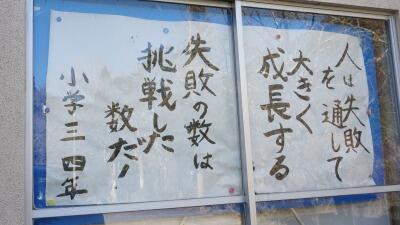 人は失敗
を通して
大きく
成長する
失敗の数は
挑戦した
数だ!
小学三四年